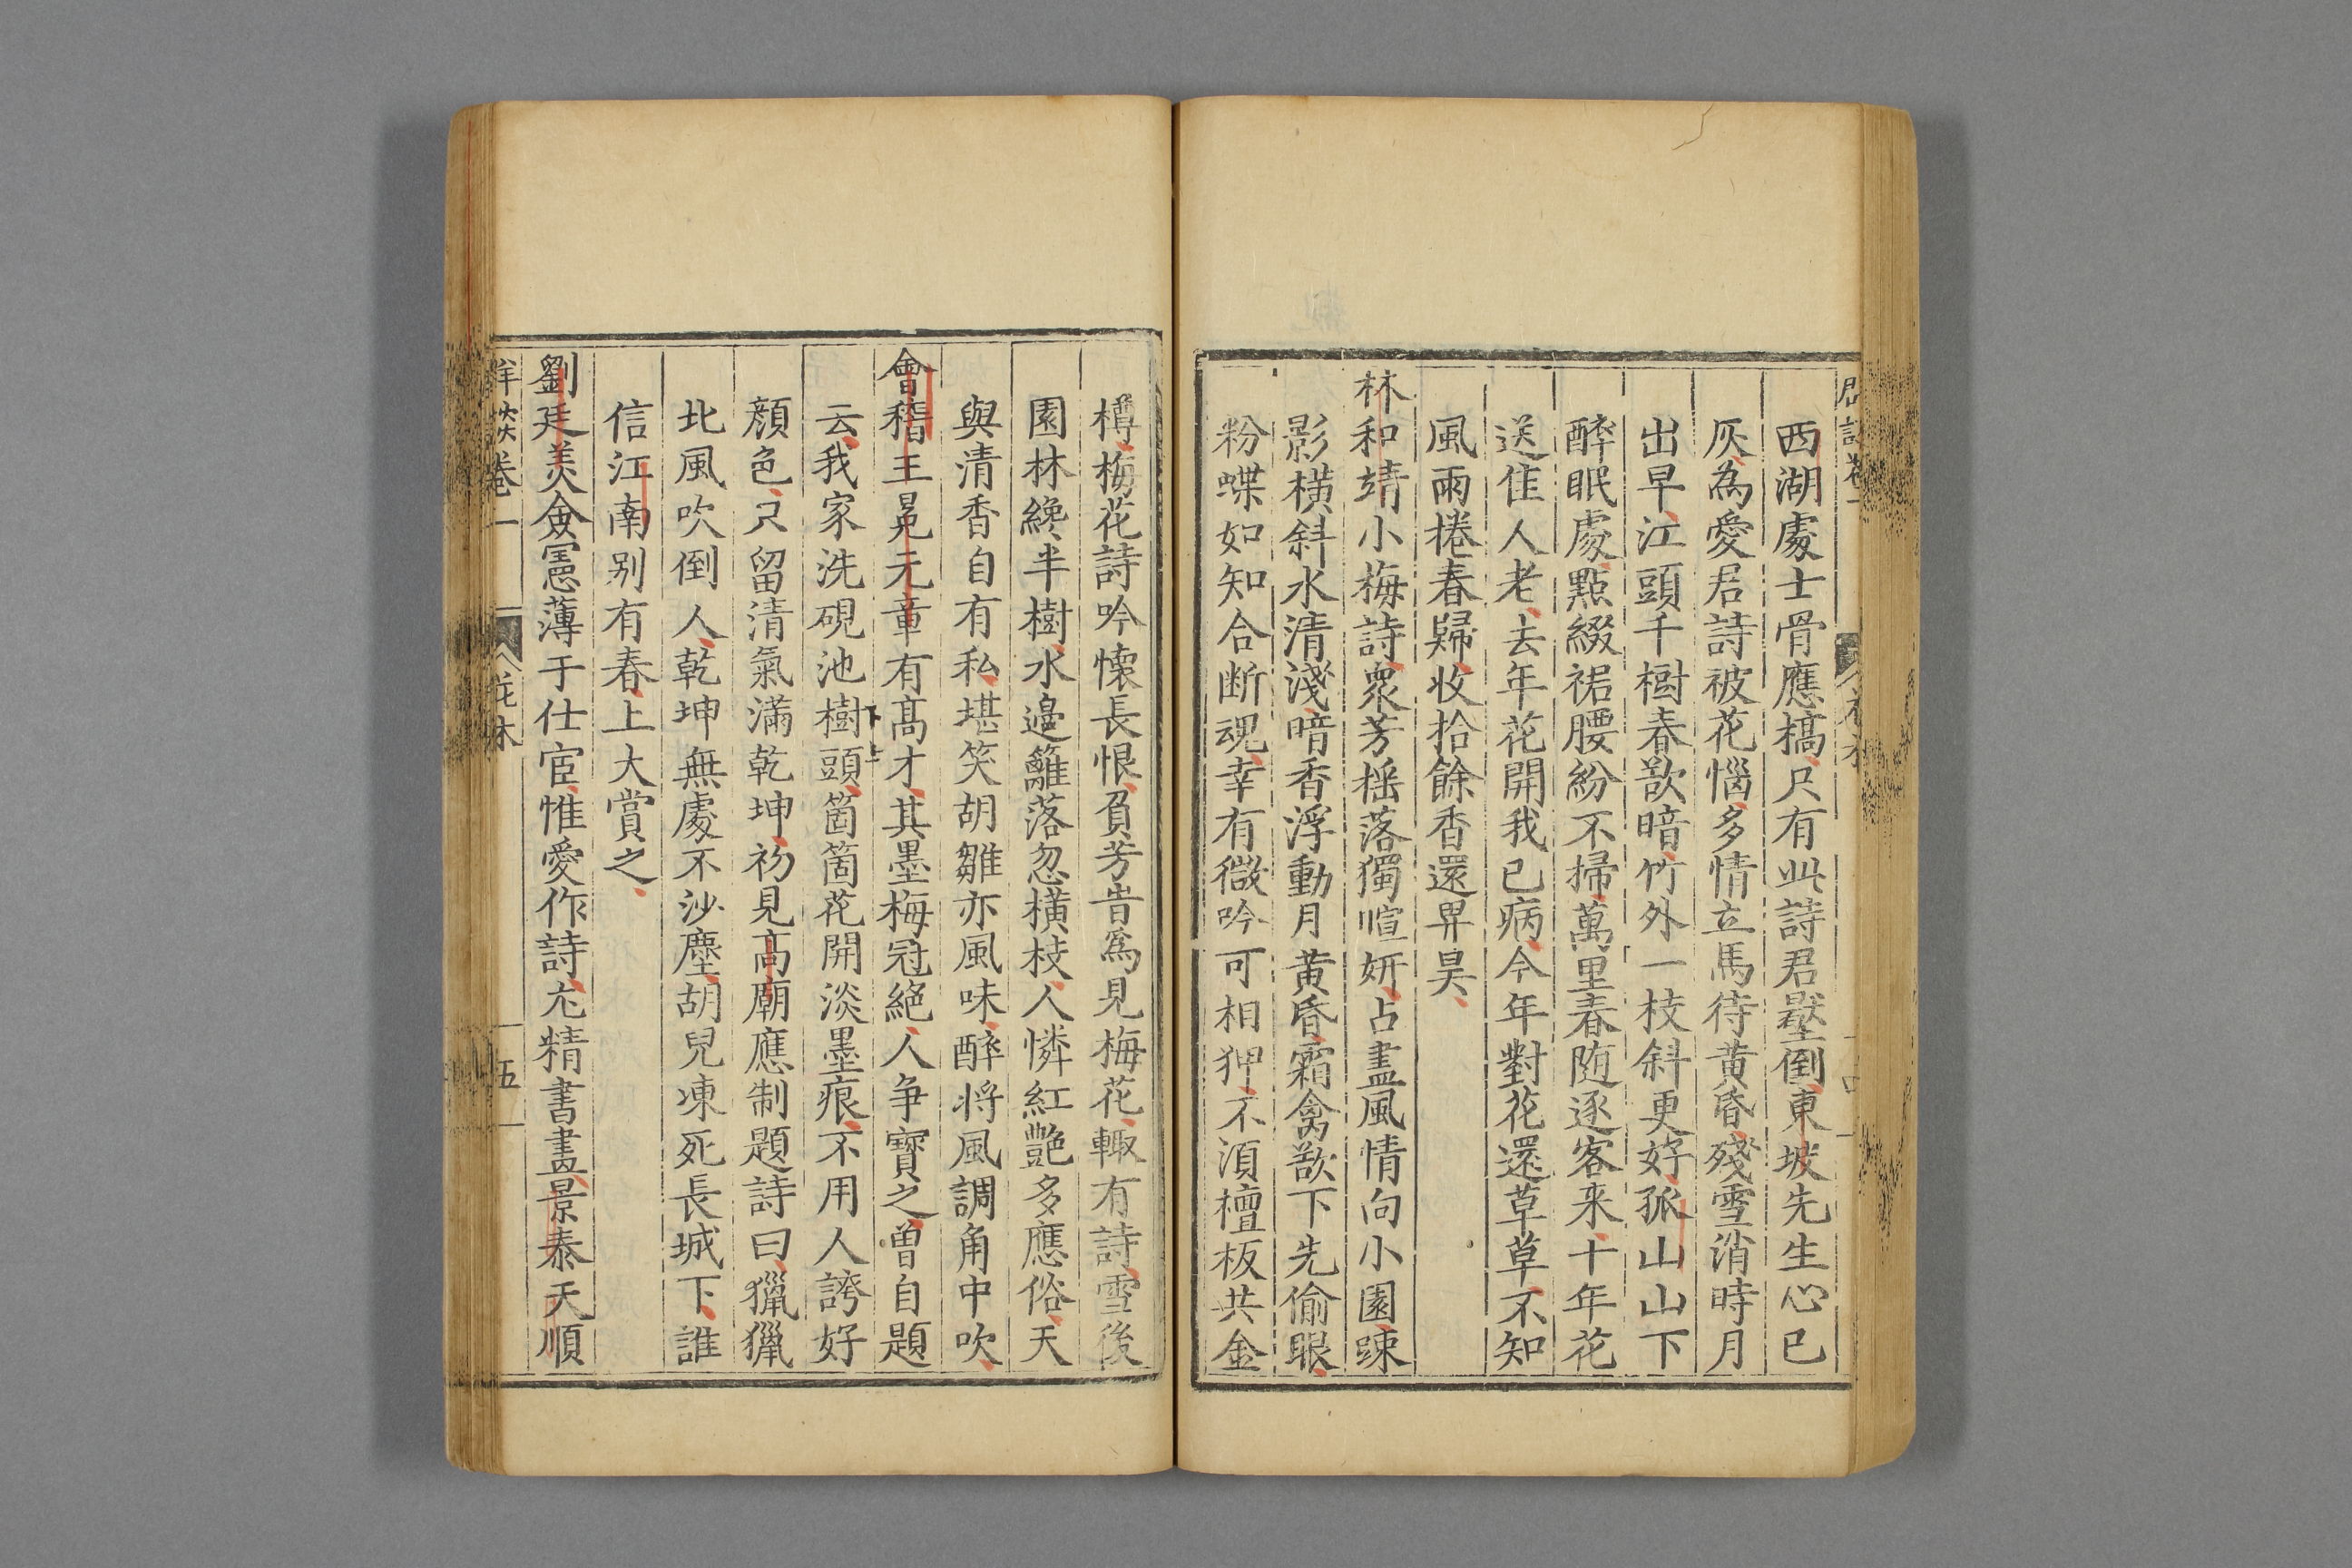 西湖處士骨應槁只有此詩君壓倒東坡先生心已
灰為愛君詩被花惱多情立馬待黃昏殘雪消時月
出早江頭千樹春欲暗竹外一枝斜更好孤山山下
醉眠處點綴裙腰紛不掃萬里春随逐客来十年花
送佳人老去年花開我已病今年對花還草草不知
風雨捲春歸收拾餘香還畀昊
林和靖小梅詩衆芳揺落獨暄妍占盡風情向小園踈
影橫斜水清淺暗香浮動月黃昏霜禽欲下先偷眼
粉蝶如知合断魂幸有微吟可相狎不湏檀板共金
樽梅花詩吟懷長恨負芳旹爲見梅花輙有詩雪後
園林纔半樹水邉籬落忽橫枝人憐紅艷多應俗天
與清香自有私堪笑胡雛亦風味醉将風調角中吹
會稽王冕元章有髙才其墨梅冠絕人爭寳之曽自題
云我家洗硯池樹頭箇箇花開淡墨痕不用人誇好
顔色只留清氣滿乾坤初見髙廟應制題詩曰獵獵
北風吹倒人乾坤無處不沙塵胡兒凍死長城下誰
信江南别有春上大賞之
劉廷美僉憲薄于仕宦惟愛作詩尤精書畫景泰天順
卷一
五